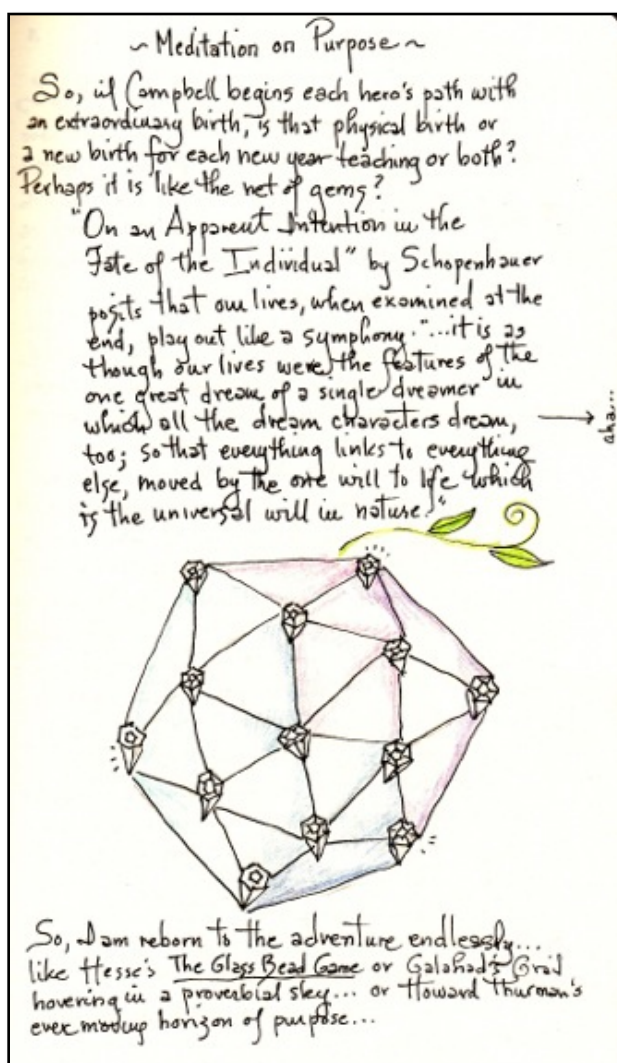 ~ Meditation on Purpose ~
So, if Campbell begins each hero's path with
an extraordinary birth, is that physical birth or
a new birth for each new year teaching or both?
Perhaps it is like the net of gems?
"On an Apparent Intention in the
Fate of the Individual" by Schopenhauer
posits that our lives, when examined at the
end, play out like a symphony. "...it is as
though our lives were the features of the
one great dream of a single dreamer in
which all the dream characters dream,
too; so that everything links to everything
else, moved by the one will to life which
is the universal will in nature."
→ aha...
So, I am reborn to the adventure endlessly...
like Hesse's The Glass Bead Game or Galahad's Grail
hovering in a proverbial sky... or Howard Thurman's
ever moving horizon of purpose...